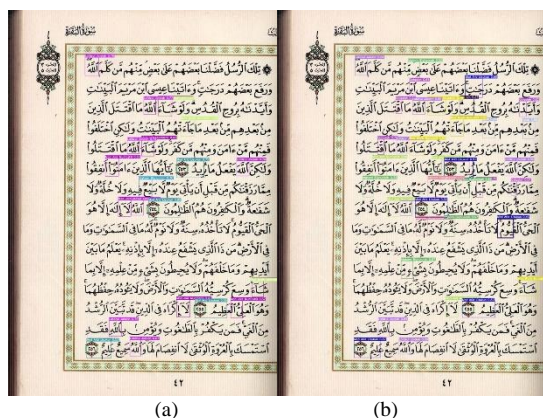 سورة البقرة
تلك الرسل فضلنا بعضهم على بعض منهم من كلم الله
ورفع بعضهم درجت وءاتينا عيسى ابن مريم البينت
وأيدنه بروح القدس ولو شاء الله ما اقتتل الذين
من بعدهم من بعد ما جاءتهم البينت ولكن اختلفوا
فمنهم من ءامن ومنهم من كفر ولو شاء الله ما اقتتلوا
ولكن الله يفعل ما يريد ٢٥٣ يأيها الذين ءامنوا أنفقوا
مما رزقنكم من قبل أن يأتي يوم لا بيع فيه ولا خلة ولا
شفعة والكفرون هم الظلمون ٢٥٤ الله لا إله إلا هو
الحي القيوم لا تأخذه سنة ولا نوم له ما في السموت وما
في الأرض من ذا الذي يشفع عنده إلا بإذنه يعلم ما بين
أيديهم وما خلفهم ولا يحيطون بشيء من علمه إلا بما
شاء وسع كرسيه السموت والأرض ولا يئوده حفظهما
وهو العلي العظيم ٢٥٥ لا إكراه في الدين قد تبين الرشد
من الغي فمن يكفر بالطغوت ويؤمن بالله فقد
استمسك بالعروة الوثقى لا انفصام لها والله سميع عليم ٢٥٦
٤٢
(a)
سورة البقرة
تلك الرسل فضلنا بعضهم على بعض منهم من كلم الله
ورفع بعضهم درجت وءاتينا عيسى ابن مريم البينت
وأيدنه بروح القدس ولو شاء الله ما اقتتل الذين
من بعدهم من بعد ما جاءتهم البينت ولكن اختلفوا
فمنهم من ءامن ومنهم من كفر ولو شاء الله ما اقتتلوا
ولكن الله يفعل ما يريد ٢٥٣ يأيها الذين ءامنوا أنفقوا
مما رزقنكم من قبل أن يأتي يوم لا بيع فيه ولا خلة ولا
شفعة والكفرون هم الظلمون ٢٥٤ الله لا إله إلا هو
الحي القيوم لا تأخذه سنة ولا نوم له ما في السموت وما
في الأرض من ذا الذي يشفع عنده إلا بإذنه يعلم ما بين
أيديهم وما خلفهم ولا يحيطون بشيء من علمه إلا بما
شاء وسع كرسيه السموت والأرض ولا يئوده حفظهما
وهو العلي العظيم ٢٥٥ لا إكراه في الدين قد تبين الرشد
من الغي فمن يكفر بالطغوت ويؤمن بالله فقد
استمسك بالعروة الوثقى لا انفصام لها والله سميع عليم ٢٥٦
٤٢
(b)